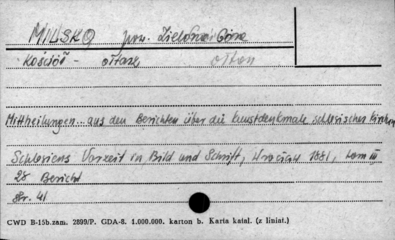 MILSKO pow. Zielona Góra
Kościół - ołtarz ołtarz
Mittheilungen.. aus den Berichten über die Kunstdenkmale schlesischer Kirchen
Schlesiens Vorzeit in Bild und Schrift, Wrocław 1881, tom III
28 Bericht
Str. 41
CWD B-15b.zam. 2899/P. GDA-8. 1.000.000. karton b. Karta katal. (z liniat.)